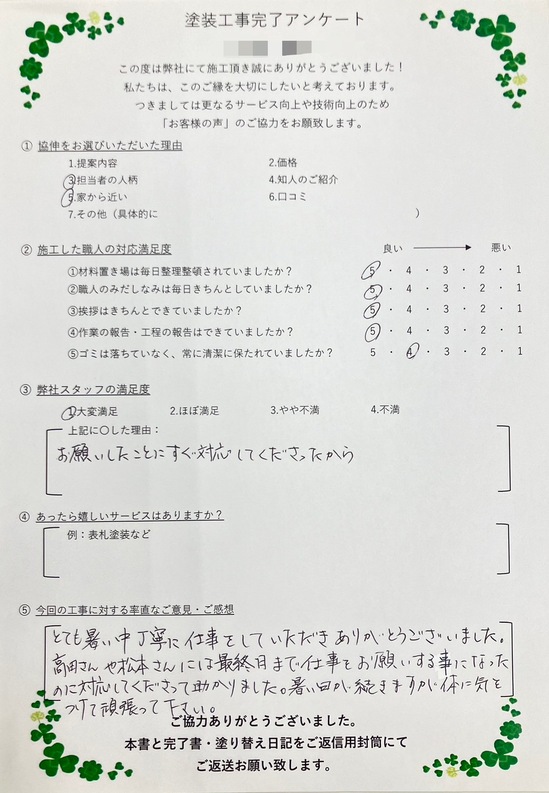 塗装工事完了アンケート
この度は弊社にて施工頂き誠にありがとうございました！
私たちは、このご縁を大切にしたいと考えております。
つきましては更なるサービス向上や技術向上のため
「お客様の声」のご協力をお願致します。
① 協伸をお選びいただいた理由
1.提案内容 2.価格
3.担当者の人柄 4.知人のご紹介
5.家から近い 6.口コミ
7.その他（具体的に ）
② 施工した職人の対応満足度 良い 悪い
①材料置き場は毎日整理整頓されていましたか？ 5 ・ 4 ・ 3 ・ 2 ・ 1
②職人のみだしなみは毎日きちんとしていましたか？ 5 ・ 4 ・ 3 ・ 2 ・ 1
③挨拶はきちんとできていましたか？ 5 ・ 4 ・ 3 ・ 2 ・ 1
④作業の報告・工程の報告はできていましたか？ 5 ・ 4 ・ 3 ・ 2 ・ 1
⑤ゴミは落ちていなく、常に清潔に保たれていましたか？ 5 ・ 4 ・ 3 ・ 2 ・ 1
③ 弊社スタッフの満足度
1.大変満足 2.ほぼ満足 3.やや不満 4.不満
上記に〇した理由：
お願いしたことにすぐ対応してくださったから
④ あったら嬉しいサービスはありますか？
例：表札塗装など
⑤ 今回の工事に対する率直なご意見・ご感想
とても暑い中丁寧に仕事をしていただきありがとうございました。
高田さんや松本さんには最終日まで仕事をお願いする事になった
のに対応してくださって助かりました。暑い日が続きますが体に気を
つけて頑張って下さい。
ご協力ありがとうございました。
本書と完了書・塗り替え日記をご返信用封筒にて
ご返送お願い致します。